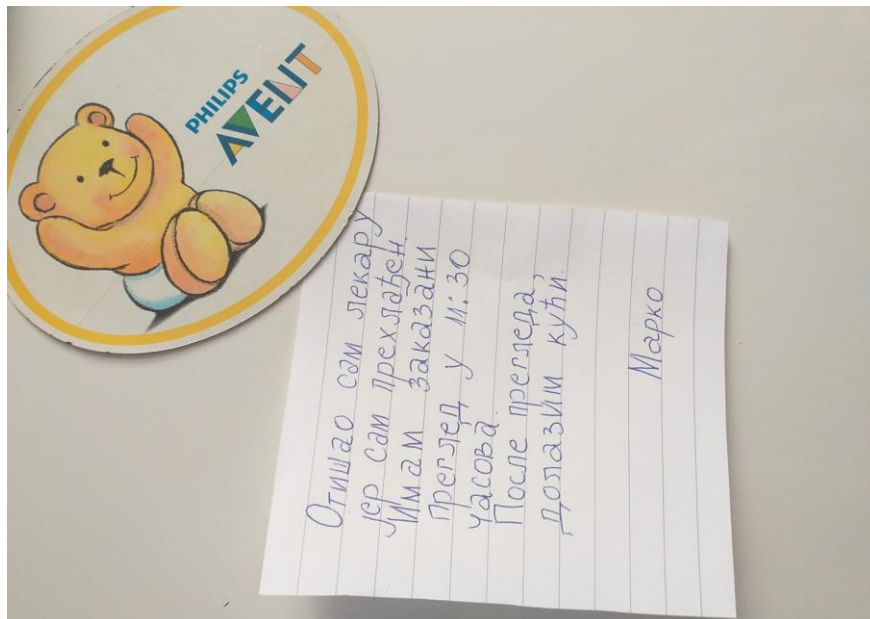 PHILIPS
AVENT
Отишао сам лекару
јер сам прехлађен.
Имам заказани
преглед у 11:30
часова.
После прегледа,
долазим кући.
Марко